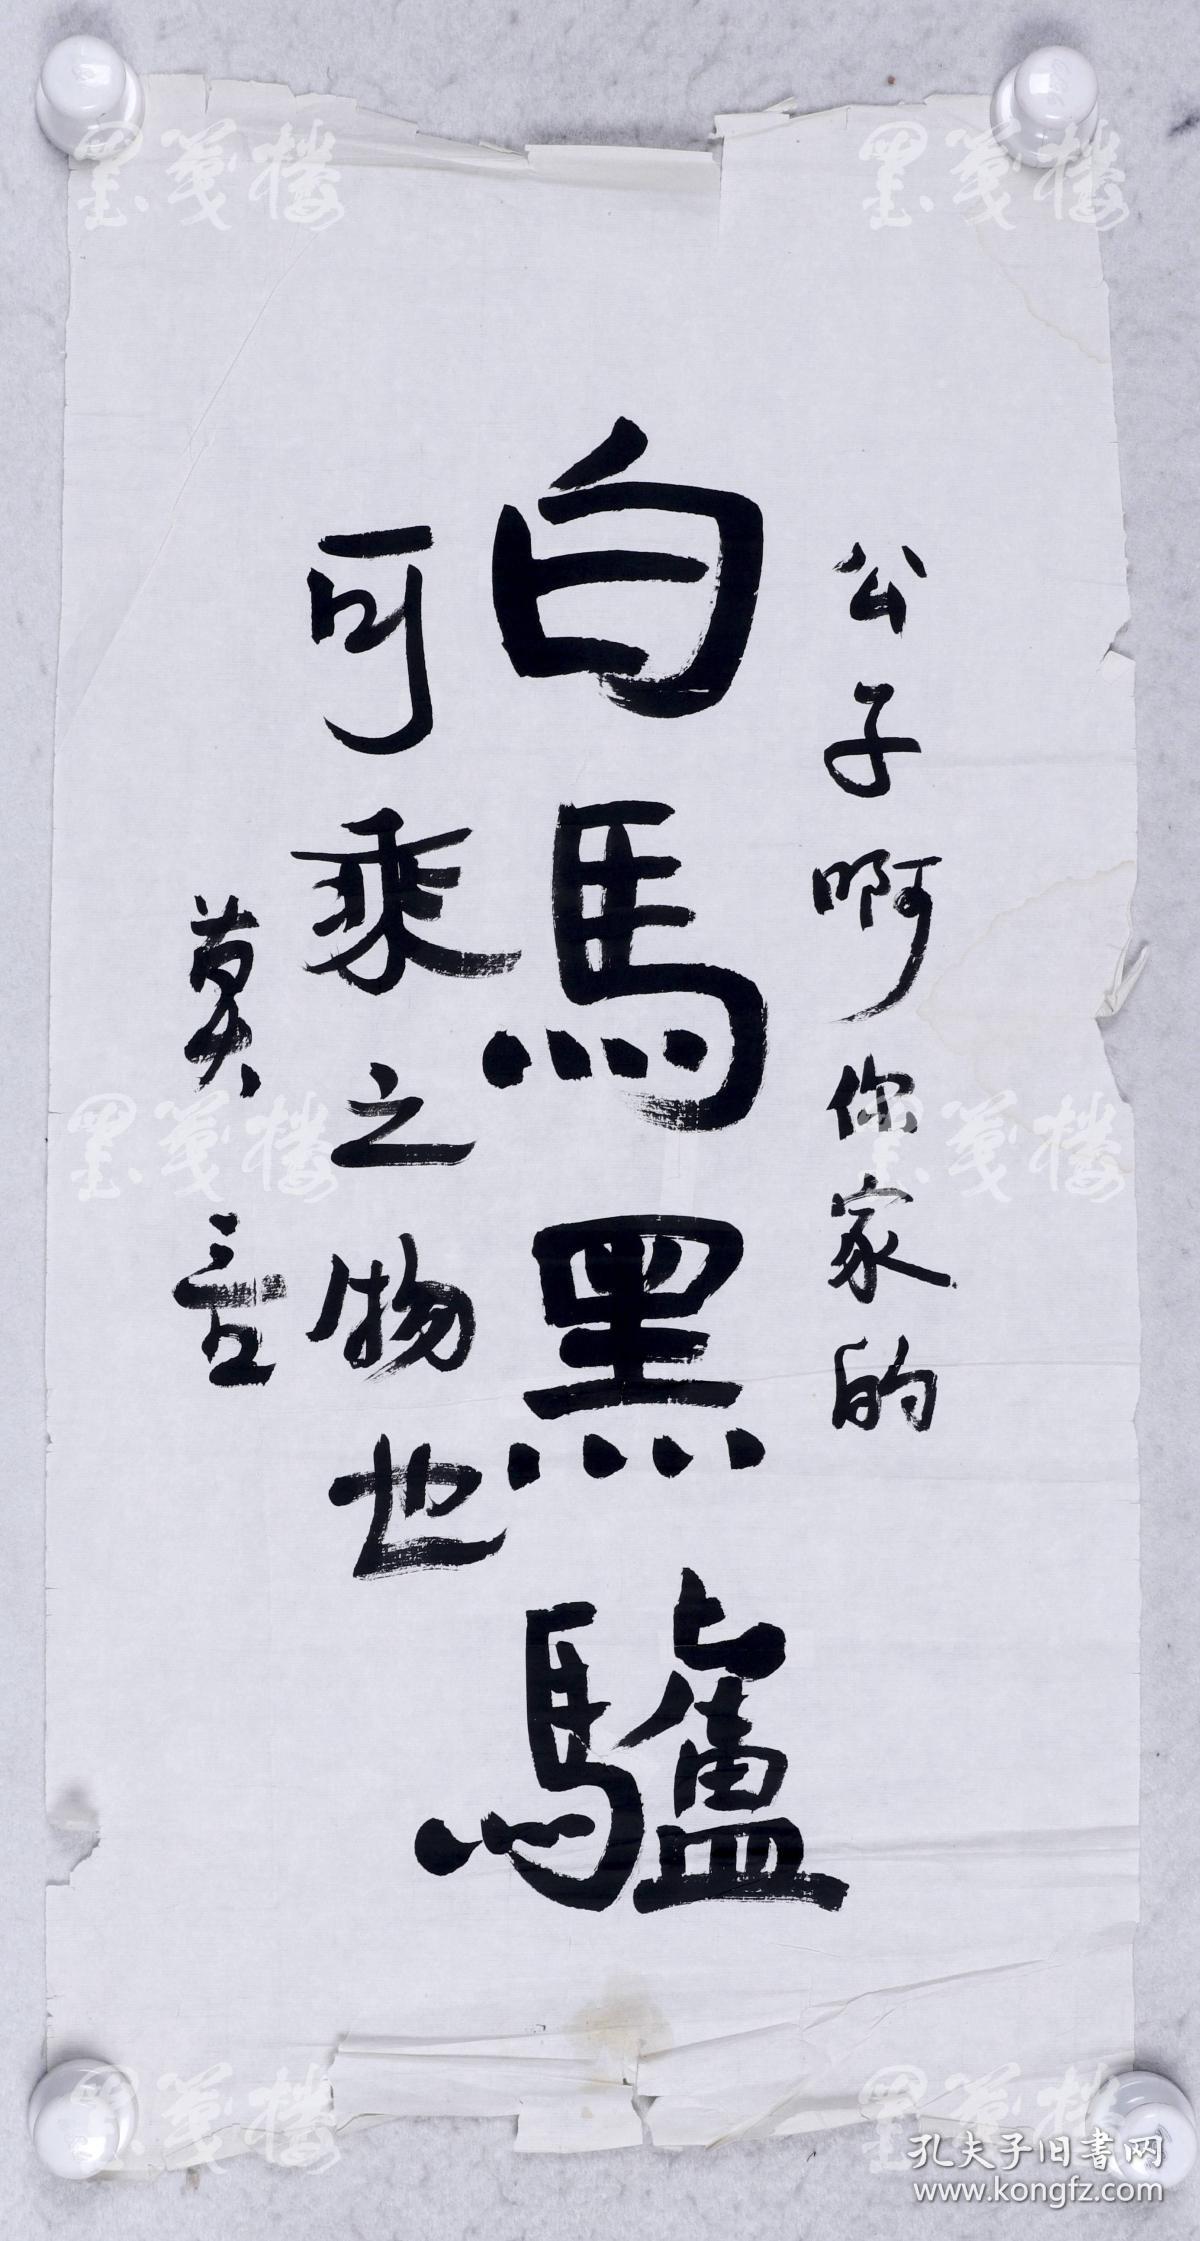 公子啊你家的
白馬黑驢
可乘之物也
莫言
墨笺楼
墨笺楼
墨笺楼
墨笺楼
墨笺楼
墨笺楼
孔夫子旧书网
www.kongfz.com